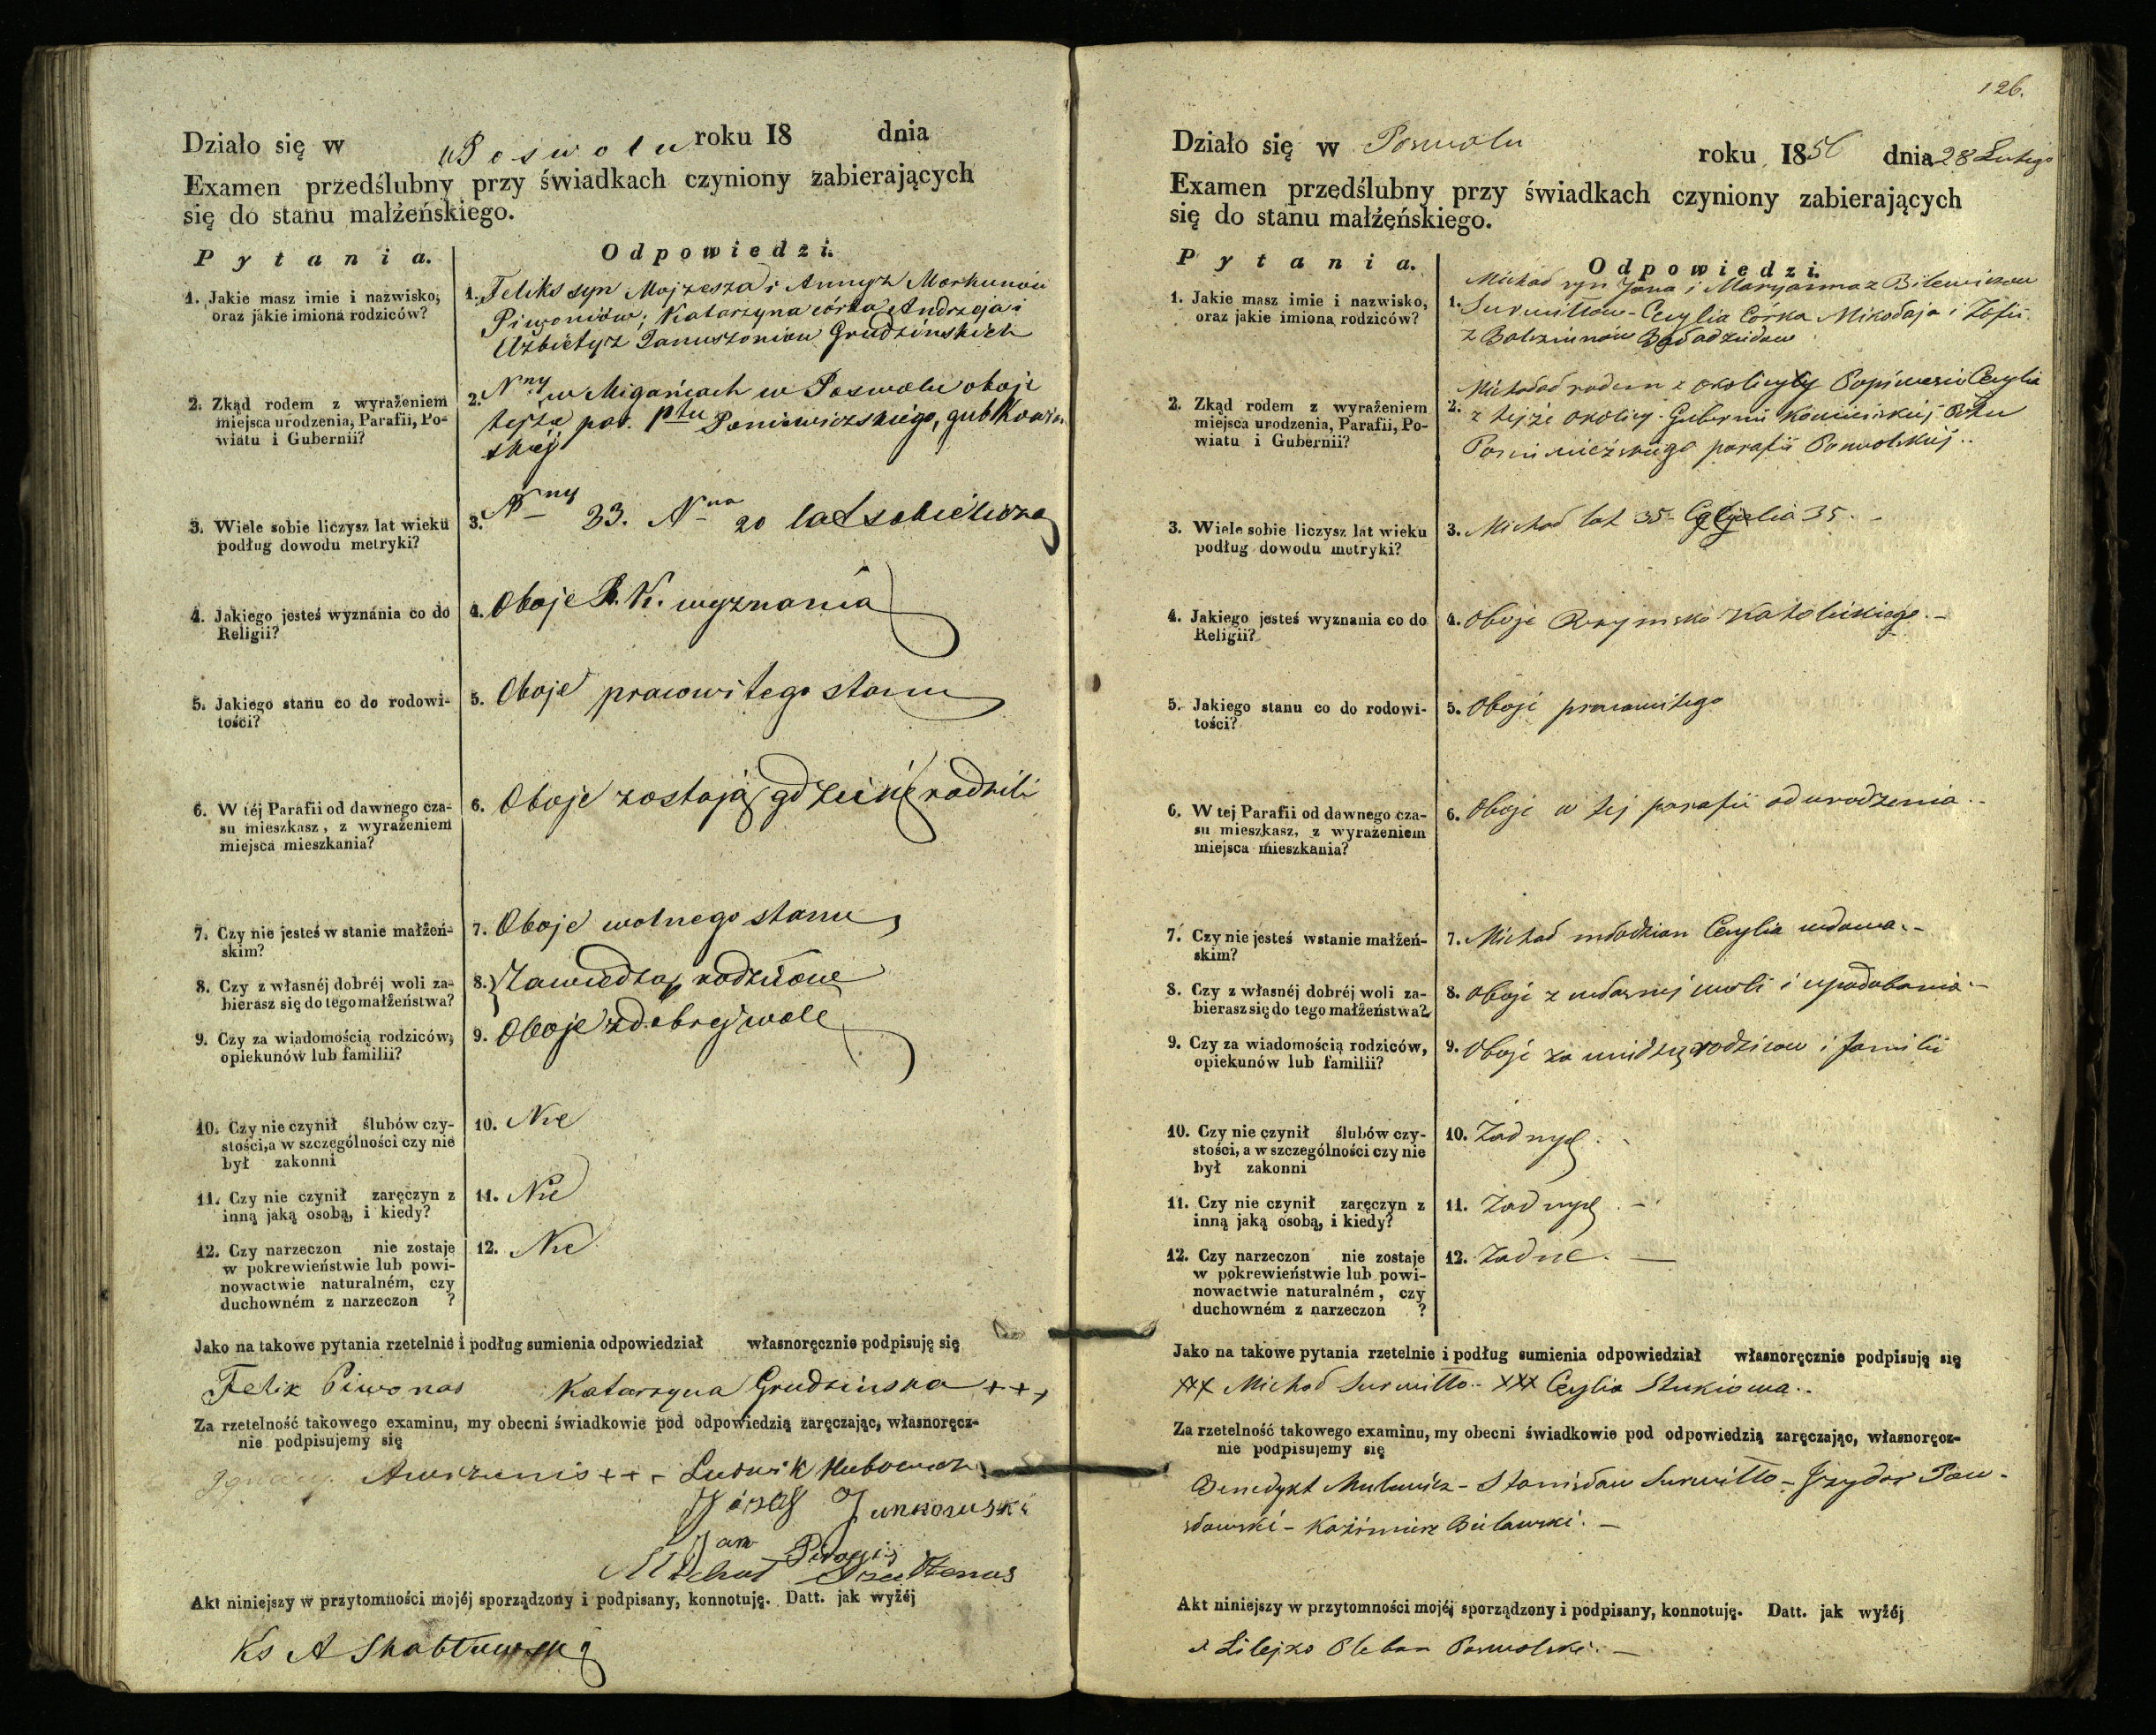 Działo się w Poswolu roku 18 dnia
Examen przedślubny przy świadkach czyniony zabierających
się do stanu małżeńskiego.
Pytania.
Odpowiedzi.
1. Jakie masz imie i nazwisko,
oraz jakie imiona rodziców?
1. Feliks syn Mojzesza i Anny z Morkunów
Piwoniów; Katarzyna córka Andrzeja i
Elżbiety z Januszoniow Grudzinskich
2. Zkąd rodem z wyrażeniem
miejsca urodzenia, Parafii, Po-
wiatu i Gubernii?
2. Nny w Migańcach w Poswolu oboje
tejże par. Pttu Poniewiezskiego, gub Kowień
skiej
3. Wiele sobie liczysz lat wieku
podług dowodu metryki?
3. Nny 33. Nna 20 lat sobie liczą
4. Jakiego jesteś wyznánia co do
Religii?
4. Oboje R. K. wyznania
5. Jakiego stanu co do rodowi-
tości?
5. Oboje prawowitego stanu
6. W téj Parafii od dawnego cza-
su mieszkasz, z wyrażeniem
miejsca mieszkania?
6. Oboje zostają gdzie się rodzili
7. Czy nie jesteś w stanie małżeń-
skim?
7. Oboje wolnego stanu
8. Czy z własnéj dobréj woli za-
bierasz się do tego małżeństwa?
8. Za wiedzą rodziców
9. Czy za wiadomością rodziców,
opiekunów lub familii?
9. Oboje z dobrej wole
10. Czy nie czynił ślubów czy-
stości, a w szczególności czy nie
był zakonni
10. Nie
11. Czy nie czynił zaręczyn z
inną jaką osobą, i kiedy?
11. Nie
12. Czy narzeczon nie zostaje
w pokrewieństwie lub powi-
nowactwie naturalném, czy
duchowném z narzeczon ?
12. Nie
Jako na takowe pytania rzetelnie i podług sumienia odpowiedział własnoręcznie podpisuję się
Felix Piwonas Katarzyna Grudzinska +++
Za rzetelność takowego examinu, my obecni świadkowie pod odpowiedzią zaręczając, własnoręcz-
nie podpisujemy się
Ignacy +++ Ludwik
Jozef
Jan
Michał
Akt niniejszy w przytomności mojéj sporządzony i podpisany, konnotuję. Datt. jak wyżéj
Ks A
126.
Działo się w Poswolu roku 1856 dnia 28 Lutego
Examen przedślubny przy świadkach czyniony zabierających
się do stanu małżeńskiego.
Pytania.
Odpowiedzi.
1. Jakie masz imie i nazwisko,
oraz jakie imiona rodziców?
Michał syn Jana i Maryanna z Bilewiczow
1. Surwiłłow - Cecylia Córka Mikołaja i Zofii
z
2. Zkąd rodem z wyrażeniem
miejsca urodzenia, Parafii, Po-
wiatu i Gubernii?
Michał rodem z okolicy Cecylia
2. z tejże okolicy - Gubernii Kowieńskiej Pttu
Poniewieżskiego parafii Poswolskiej..
3. Wiele sobie liczysz lat wieku
podług dowodu metryki?
3. Michał lat 35 - Cecylia 35. -
4. Jakiego jesteś wyznania co do
Religii?
4. Oboje Rzymsko Katolickiego. -
5. Jakiego stanu co do rodowi-
tości?
5. Oboje prawowitego
6. W tej Parafii od dawnego cza-
su mieszkasz, z wyrażeniem
miejsca mieszkania?
6. Oboje w tej parafii od urodzenia. -
7. Czy nie jesteś w stanie małżeń-
skim?
7. Michał młodzian Cecylia wdowa. -
8. Czy z własnéj dobréj woli za-
bierasz się do tego małżeństwa?
8. Oboje z własnej woli i upodobania. -
9. Czy za wiadomością rodziców,
opiekunów lub familii?
9. Oboje za wiedzą rodzicow i familii
10. Czy nie czynił ślubów czy-
stości, a w szczególności czy nie
był zakonni
10. Żadnych. -
11. Czy nie czynił zaręczyn z
inną jaką osobą, i kiedy?
11. Żadnych. -
12. Czy narzeczon nie zostaje
w pokrewieństwie lub powi-
nowactwie naturalném, czy
duchowném z narzeczon ?
12. Żadne. -
Jako na takowe pytania rzetelnie i podług sumienia odpowiedział własnoręcznie podpisuję się
XXX Michał Surwiłło - XXX Cecylia Stukiowa..
Za rzetelność takowego examinu, my obecni świadkowie pod odpowiedzią zaręczając, własnoręcz-
nie podpisujemy się
Benedykt - Stanisław Surwiłło - Izydor Paw-
słowski - Kaźimierz Bielawski. -
Akt niniejszy w przytomności mojéj sporządzony i podpisany, konnotuję. Datt. jak wyżéj
Lilejko Pleban Poswolski. -